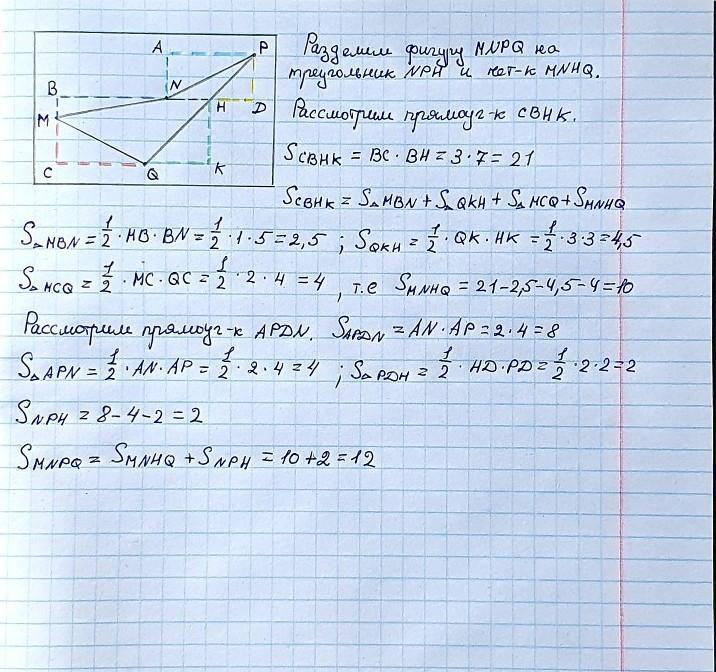 A P
B N H D
M
C Q K
Разделим фигуру MNPQ на
треугольник NPH и чет-к MNHQ.
Рассмотрим прямоуг-к CBHK.
S_CBHK = BC · BH = 3 · 7 = 21
S_CBHK = S_△MBN + S_△QKH + S_△MCQ + S_MNHQ
S_△MBN = 1/2 · MB · BN = 1/2 · 1 · 5 = 2,5 ; S_QKH = 1/2 · QK · HK = 1/2 · 3 · 3 = 4,5
S_△MCQ = 1/2 · MC · QC = 1/2 · 2 · 4 = 4 , т.е S_MNHQ = 21 - 2,5 - 4,5 - 4 = 10
Рассмотрим прямоуг-к APDN. S_APDN = AN · AP = 2 · 4 = 8
S_△APN = 1/2 · AN · AP = 1/2 · 2 · 4 = 4 ; S_△PDH = 1/2 · HD · PD = 1/2 · 2 · 2 = 2
S_NPH = 8 - 4 - 2 = 2
S_MNPQ = S_MNHQ + S_NPH = 10 + 2 = 12